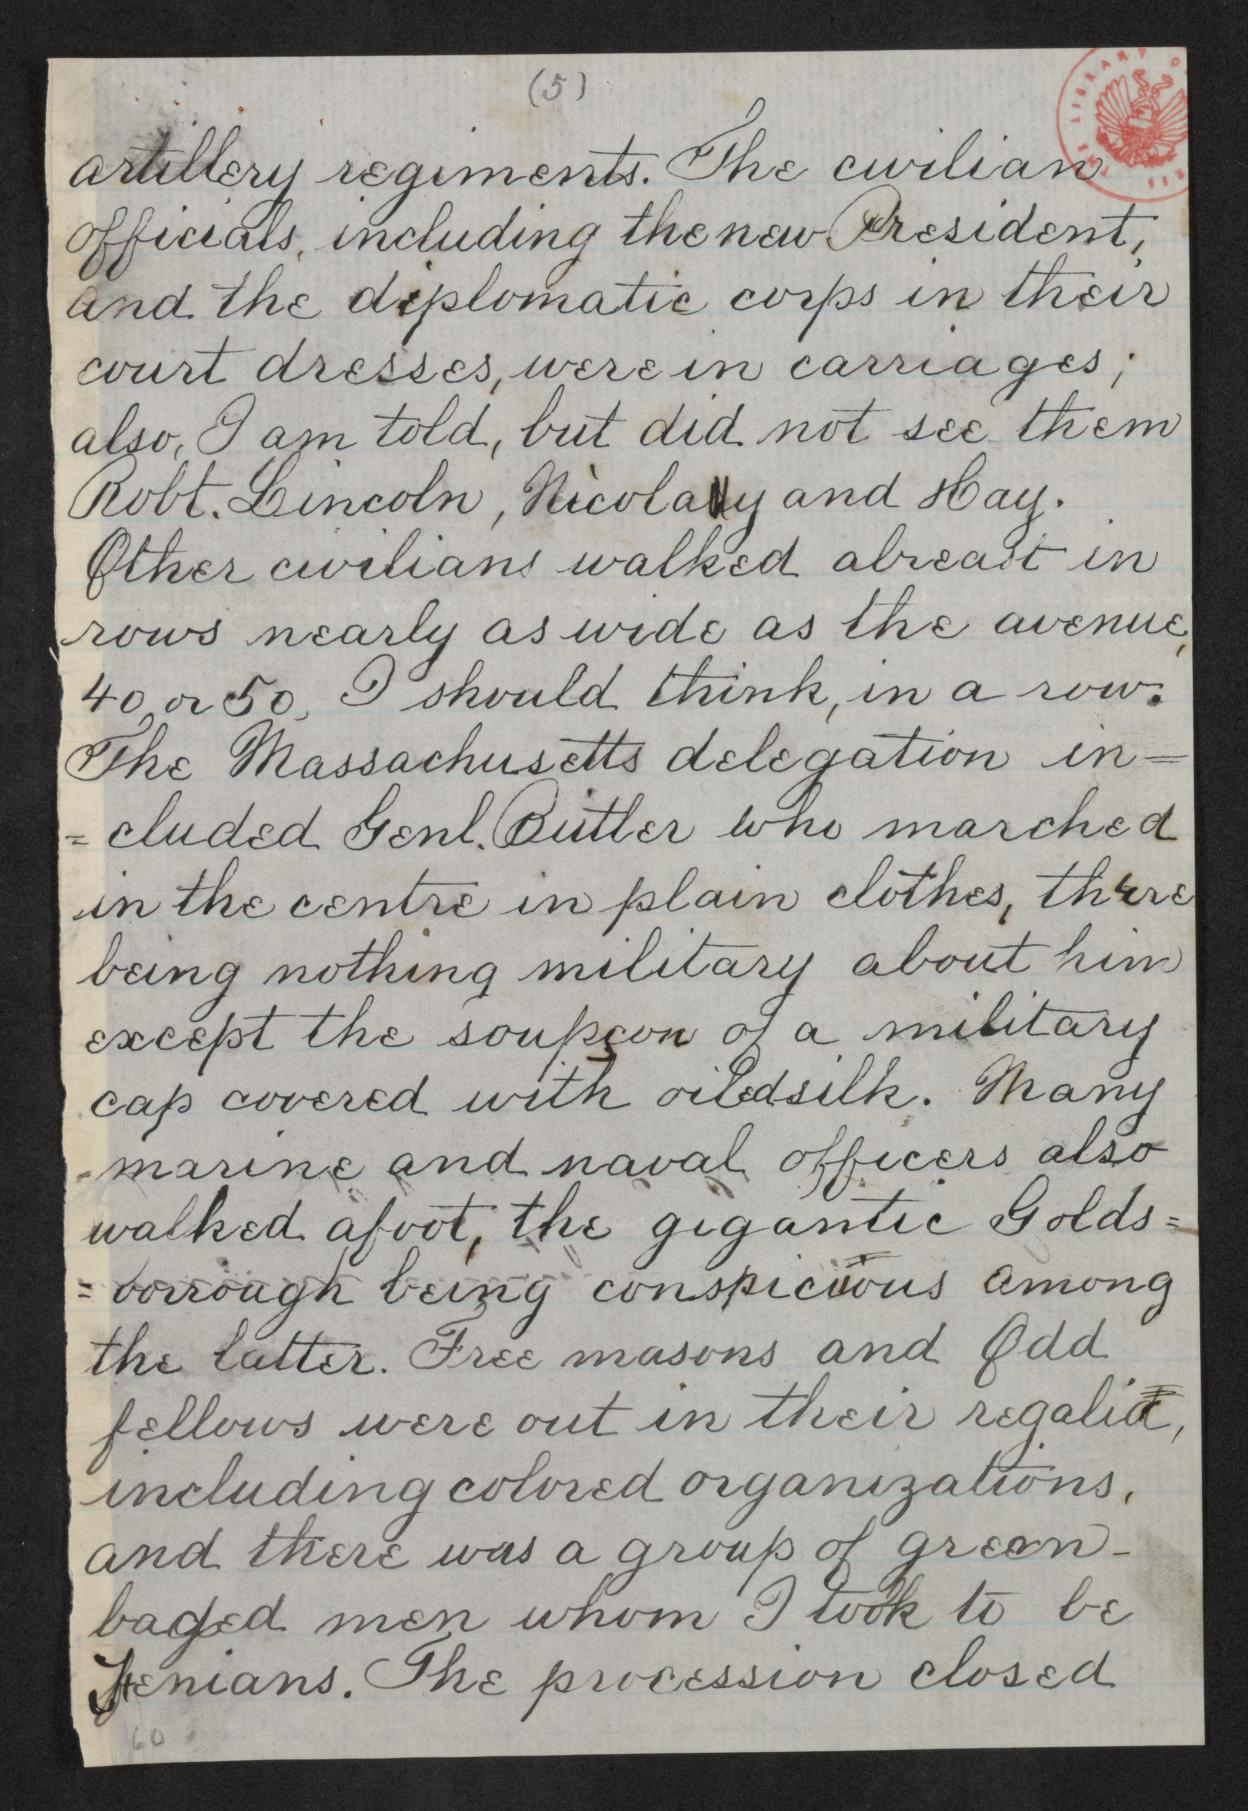 (5)
artillery regiments. The civilian
officials, including the new President,
and the diplomatic corps in their
court dresses, were in carriages;
also, I am told, but did not see them
Robt. Lincoln, Nicolay and Hay.
Other civilians walked abreast in
rows nearly as wide as the avenue,
40, or 50, I should think, in a row.
The Massachusetts delegation in=
=cluded Genl. Butler who marched
in the centre in plain clothes, there
being nothing military about him
except the soupçon of a military
cap covered with oiledsilk. Many
marine and naval officers also
walked afoot, the gigantic Golds=
=borrough being conspicuous among
the latter. Free masons and Odd
fellows were out in their regalia,
including colored organizations,
and there was a group of green-
baged men whom I took to be
Fenians. The procession closed
60